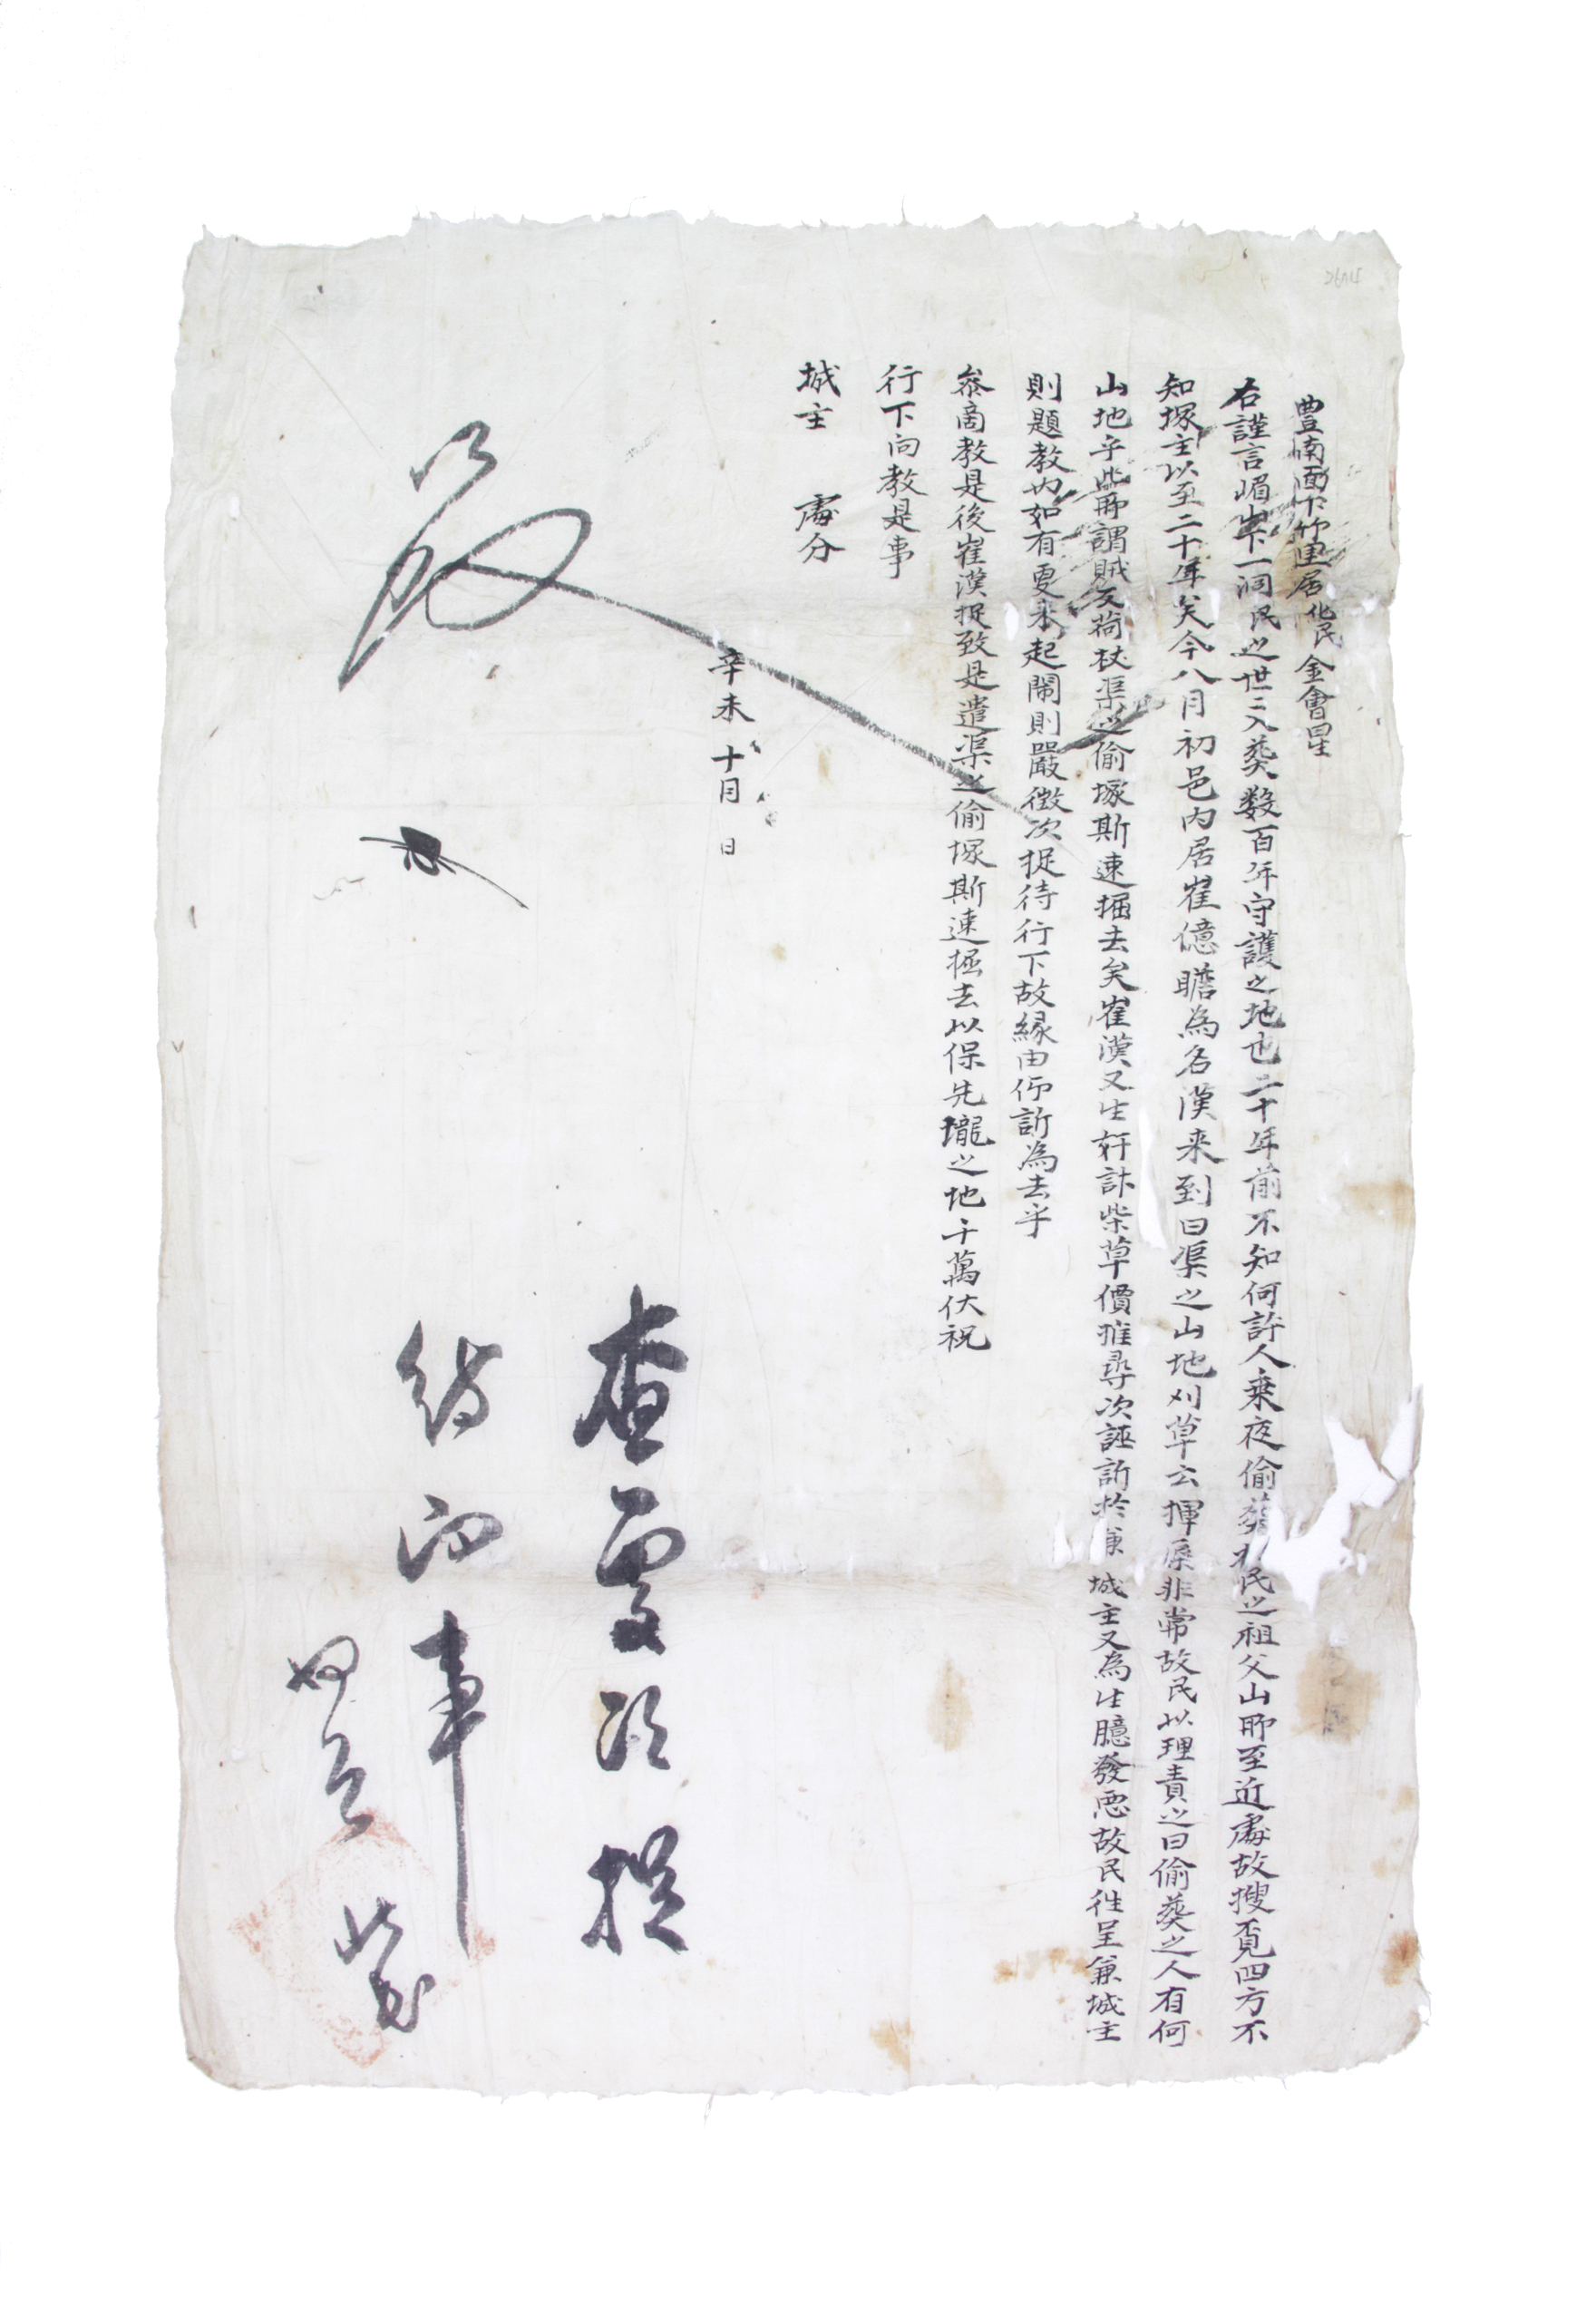 豊南面下竹里居化民金會星
右謹言嵋山下一洞民之世二入葬数百年守護之地也二十年前不知何許人乗夜偷葬於民之祖父山所至近處故搜覓四方不
知塚主以至二十年矣今八月初邑内居崔億瞻為名漢来到曰渠之山地刈草云揮辱非常故民以理責之曰偷葬之人有何
山地乎此所謂賊反荷杖渠之偷塚斯速掘去矣崔漢又生奸計柴草價推尋次誣訴於兼 城主又為生臆發惡故民徃呈兼城主
則題教内如有更来起閙則嚴徵次捉待行下故緣由仰訴為去乎
叅商教是後崔漢捉致是遣渠之偷塚斯速掘去以保先壠之地千萬伏祝
行下向教是事
城主 處分
辛未 十月 日
査處次捉
待向事
卄四日 狀